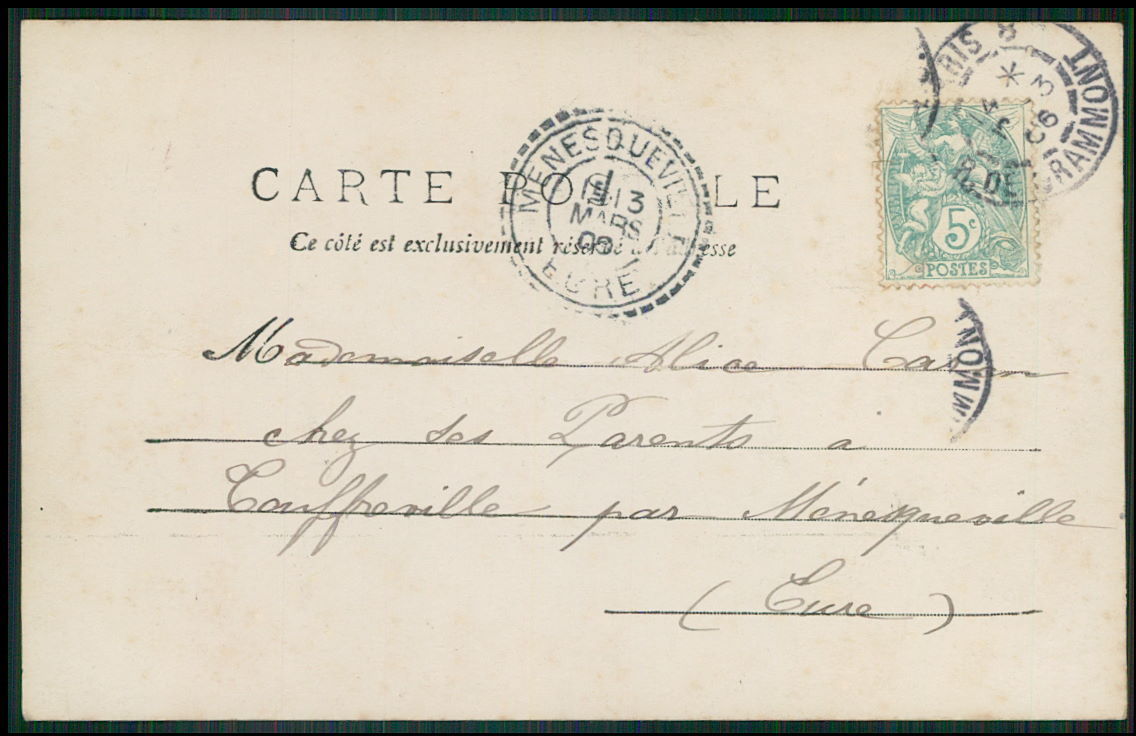 CARTE PO LE
Ce côté est exclusivement réservé à l'adresse
MENESQUEVILLE
13
MARS
EURE
PARIS 8
GRAMMONT
MMONT
5c
POSTES
Mademoiselle Alice
chez ses Parents à
Touffreville par Ménesqueville
(Eure)